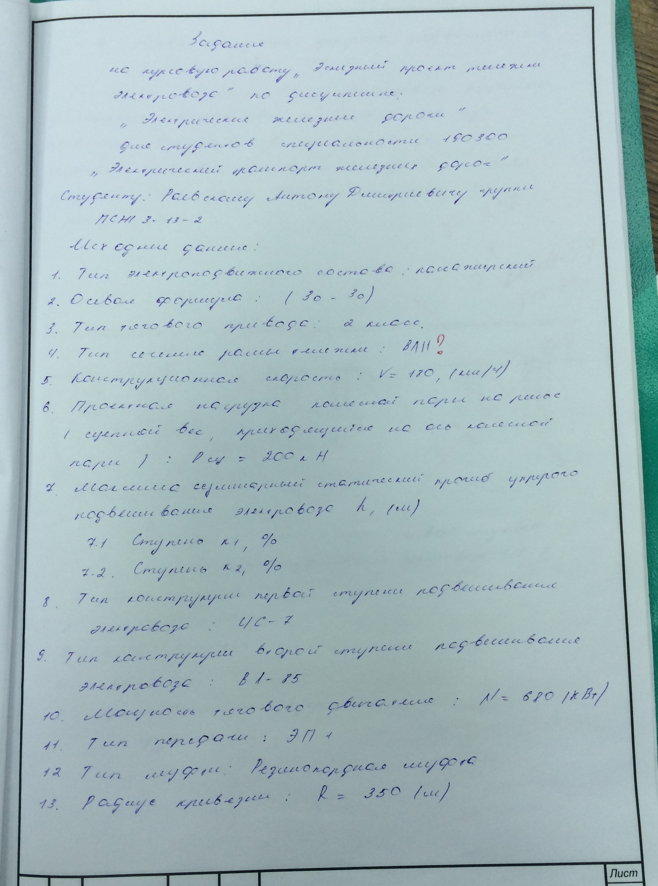 Задание
на курсовую работу „Эскизный проект тележки
электровоза" по дисциплине:
„Электрические железные дороги"
для студентов специальности 190300
„Электрический транспорт железных дорог"
Студенту: Раевскому Антону Дмитриевичу группы
-13-2
Исходные данные:
1. Тип электроподвижного состава: пасажирский
2. Осевая формула: (3о - 3о)
3. Тип тягового привода: 2 класс.
4. Тип сечение рамы тележки: ?
5. Конструкционная скорость: V= 180, (км/ч)
6. Проектная нагрузка колесной пары на рельс
(сцепной вес, приходящийся на ось колесной
пары): Рсц = 200 кН
7. суммарный статический прогиб упругого
подвешивания электровоза h, (м)
7.1 Ступень к1, %
7.2. Ступень к2, %
8. Тип конструкции первой ступени подвешивания
электровоза: ЧС-7
9. Тип конструкции второй ступени подвешивания
электровоза: ВЛ-85
10. Мощность тягового двигателя: N= 680 (кВт)
11. Тип передачи: ЭП1
12 Тип муфты: Резинокордная муфта
13. Радиус кривезны: R = 350 (м)
Лист